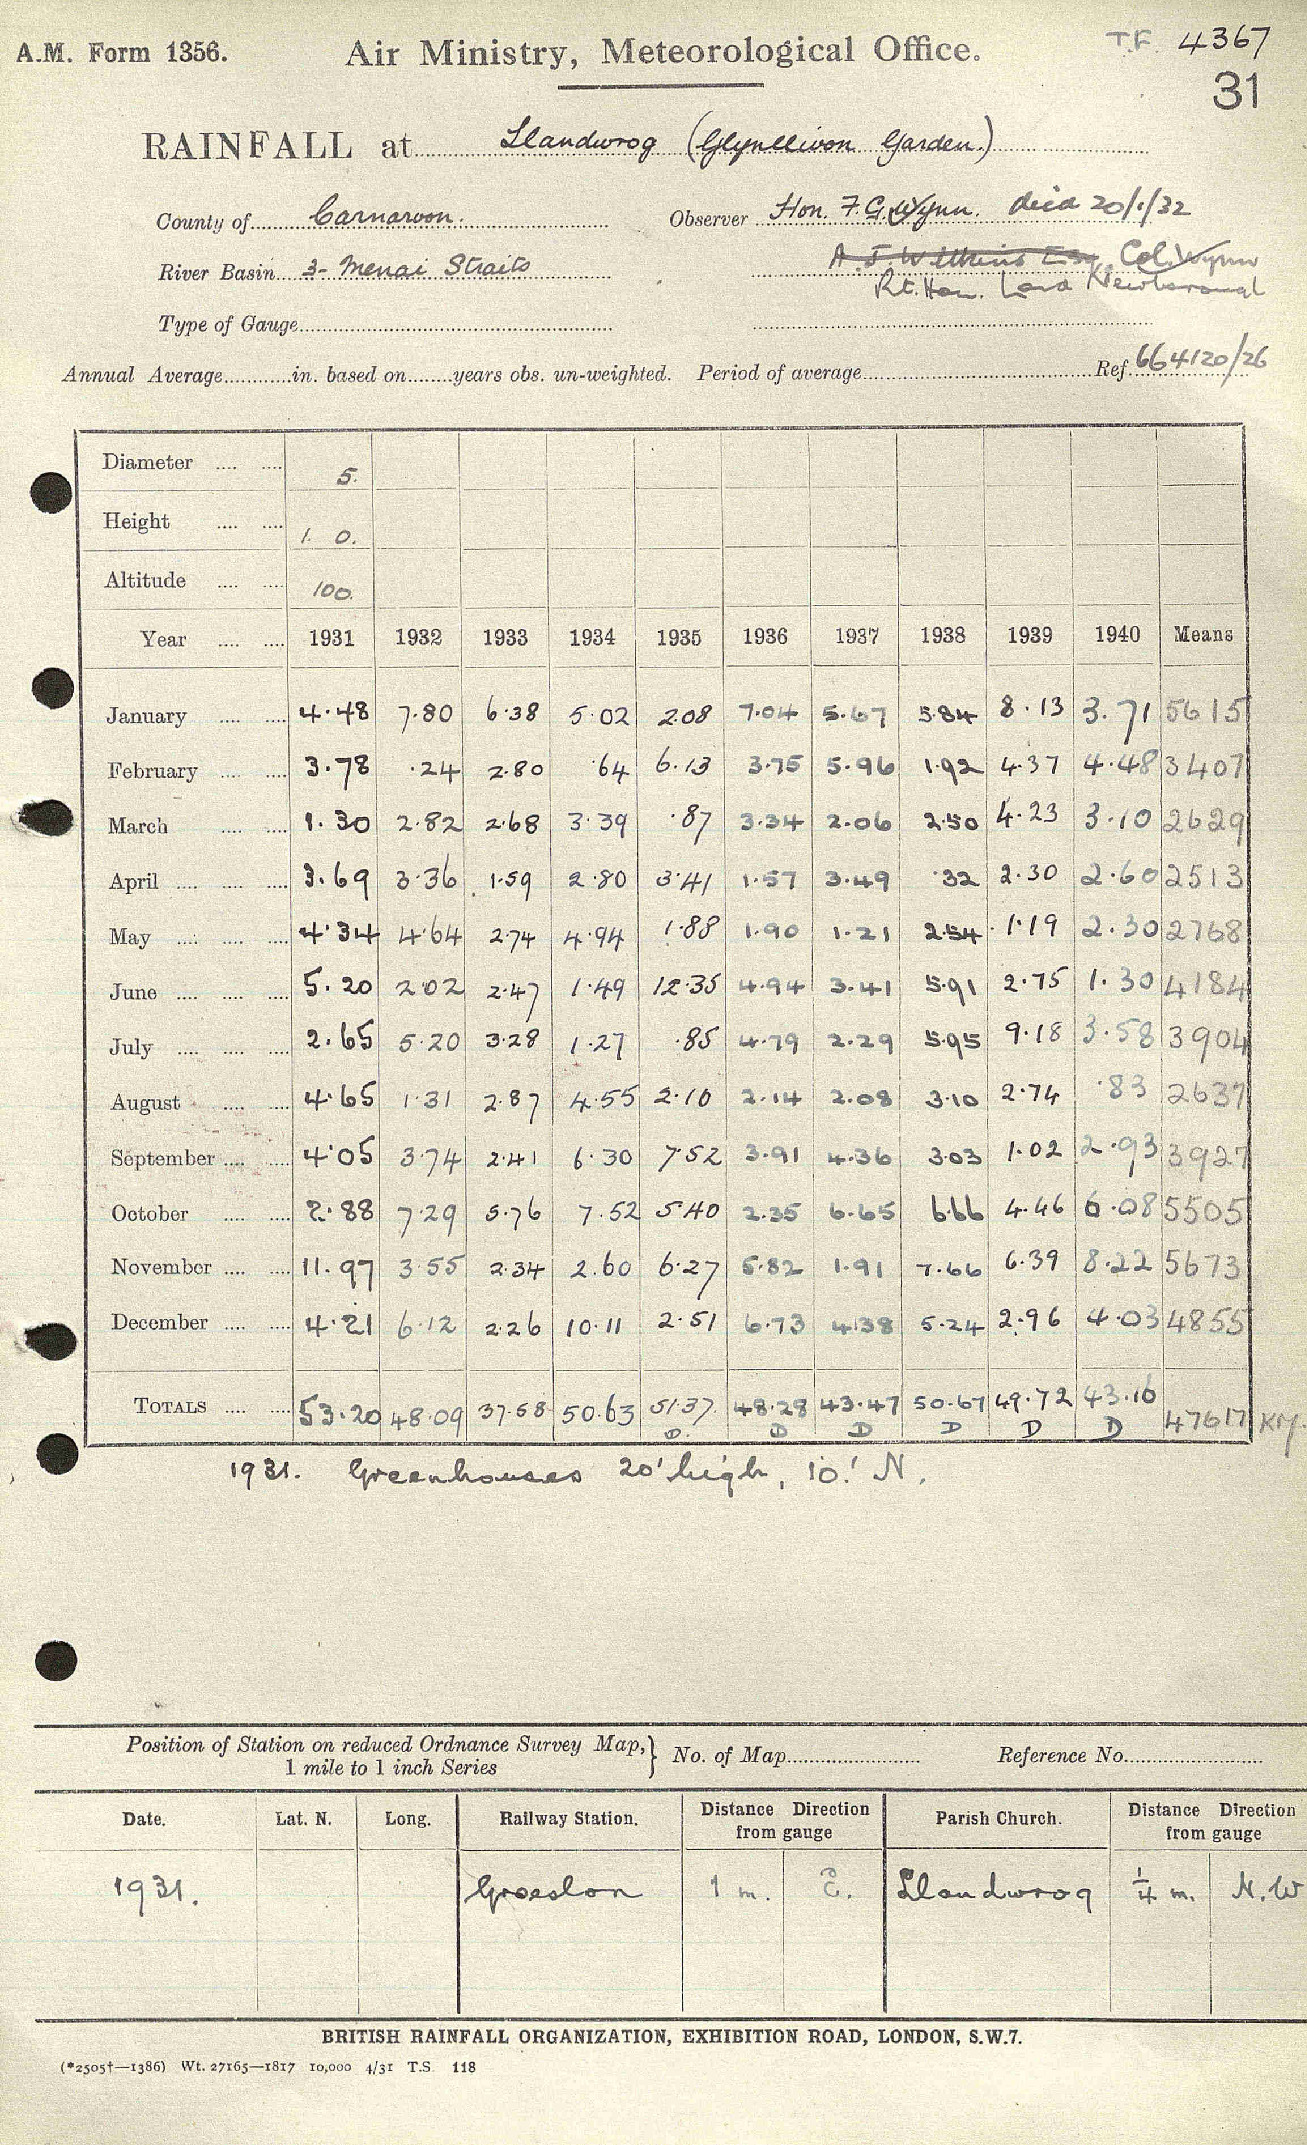 A.M. Form 1356. Air Ministry, Meteorological Office. T.F. 4367
31
RAINFALL at Llandwrog (Glynllivon Garden.)
County of Carnarvon. Observer Hon. F.G. Wynn. died 20/1/32
River Basin 3- Menai Straits A. J. Wilkins Esq. Col. Wynn
Rt. Hon. Lord Newborough
Type of Gauge
Annual Average in. based on years obs. un-weighted. Period of average Ref. 664120/26
Diameter 5.
Height 1. 0.
Altitude 100.
Year 1931 1932 1933 1934 1935 1936 1937 1938 1939 1940 Means
January 4.48 7.80 6.38 5.02 2.08 7.04 5.67 5.84 8.13 3.71 5615
February 3.78 .24 2.80 .64 6.13 3.75 5.96 1.92 4.37 4.48 3407
March 1.30 2.82 2.68 3.39 .87 3.34 2.06 2.50 4.23 3.10 2629
April 3.69 3.36 1.59 2.80 3.41 1.57 3.49 .32 2.30 2.60 2513
May 4.34 4.64 2.74 4.94 1.88 1.90 1.21 2.54 1.19 2.30 2768
June 5.20 2.02 2.47 1.49 12.35 4.94 3.41 5.91 2.75 1.30 4184
July 2.65 5.20 3.28 1.27 .85 4.79 2.29 5.95 9.18 3.58 3904
August 4.65 1.31 2.87 4.55 2.10 2.14 2.08 3.10 2.74 .83 2637
September 4.05 3.74 2.41 6.30 7.52 3.91 4.36 3.03 1.02 2.93 3927
October 2.88 7.29 5.76 7.52 5.40 2.35 6.65 6.66 4.46 6.08 5505
November 11.97 3.55 2.34 2.60 6.27 5.82 1.91 7.66 6.39 8.22 5673
December 4.21 6.12 2.26 10.11 2.51 6.73 4.38 5.24 2.96 4.03 4855
TOTALS 53.20 48.09 37.58 50.63 51.37 48.28 43.47 50.67 49.72 43.16 47617 KM.
D. D D D D D
1931. Greenhouses 20' high, 10' N.
Position of Station on reduced Ordnance Survey Map, 1 mile to 1 inch Series } No. of Map Reference No.
Date. Lat. N. Long. Railway Station. Distance Direction from gauge Parish Church. Distance Direction from gauge
1931. Groeslon 1 m. E. Llandwrog 1/4 m. N.W
BRITISH RAINFALL ORGANIZATION, EXHIBITION ROAD, LONDON, S.W.7.
(*2505†—1386) Wt. 27165—1817 10,000 4/31 T.S. 118